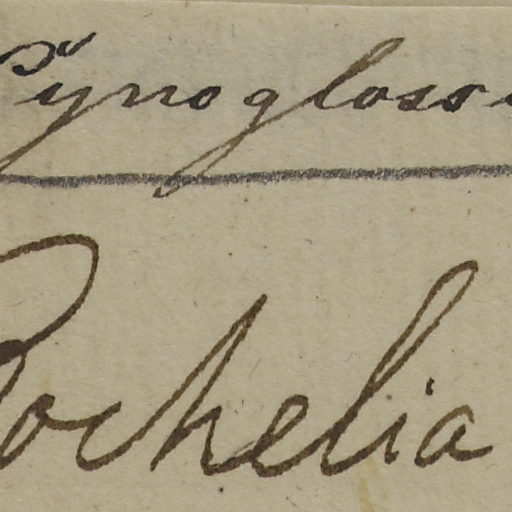 Cynogloss
Rochelia